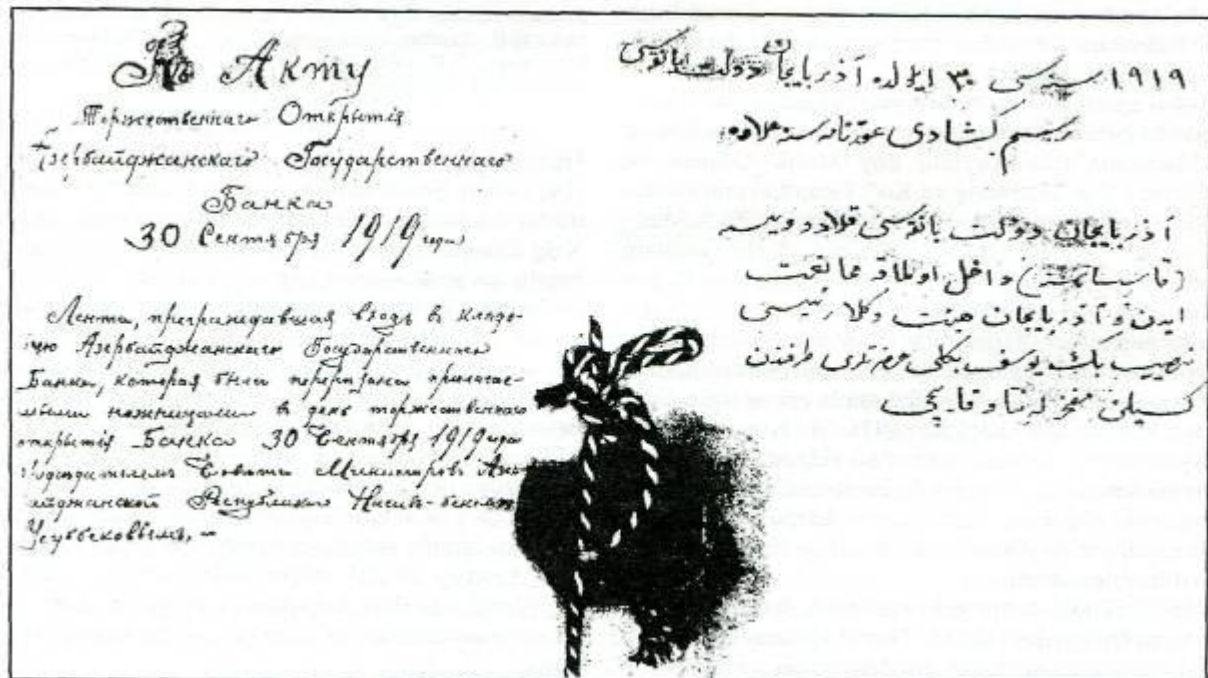 Къ Акту
Торжественнаго Открытія
Азербайджанскаго Государственнаго
Банка
30 Сентября 1919 года
Лента, преграждавшая входъ в кладо-
вую Азербайджанскаго Государственнаго
Банка, которая была перерезана прилагае-
мыми ножницами в день торжественнаго
открытія Банка 30 Сентября 1919 года
Председателемъ Совета Министровъ Азер-
байджанской Республики Насибъ-бекомъ
Усуббековымъ. —
۱۹۱۹ سنه‌سی ۳۰ ایلول آذربایجان دولت بانقوسی
رسم کشادی
آذربایجان دولت بانقوسی
داخل اولماقه ممانعت
ایدن و آذربایجان هیئت وکلا رئیسی
نصیب بك یوسف بکلی حضرتلری طرفندن
کسیلن